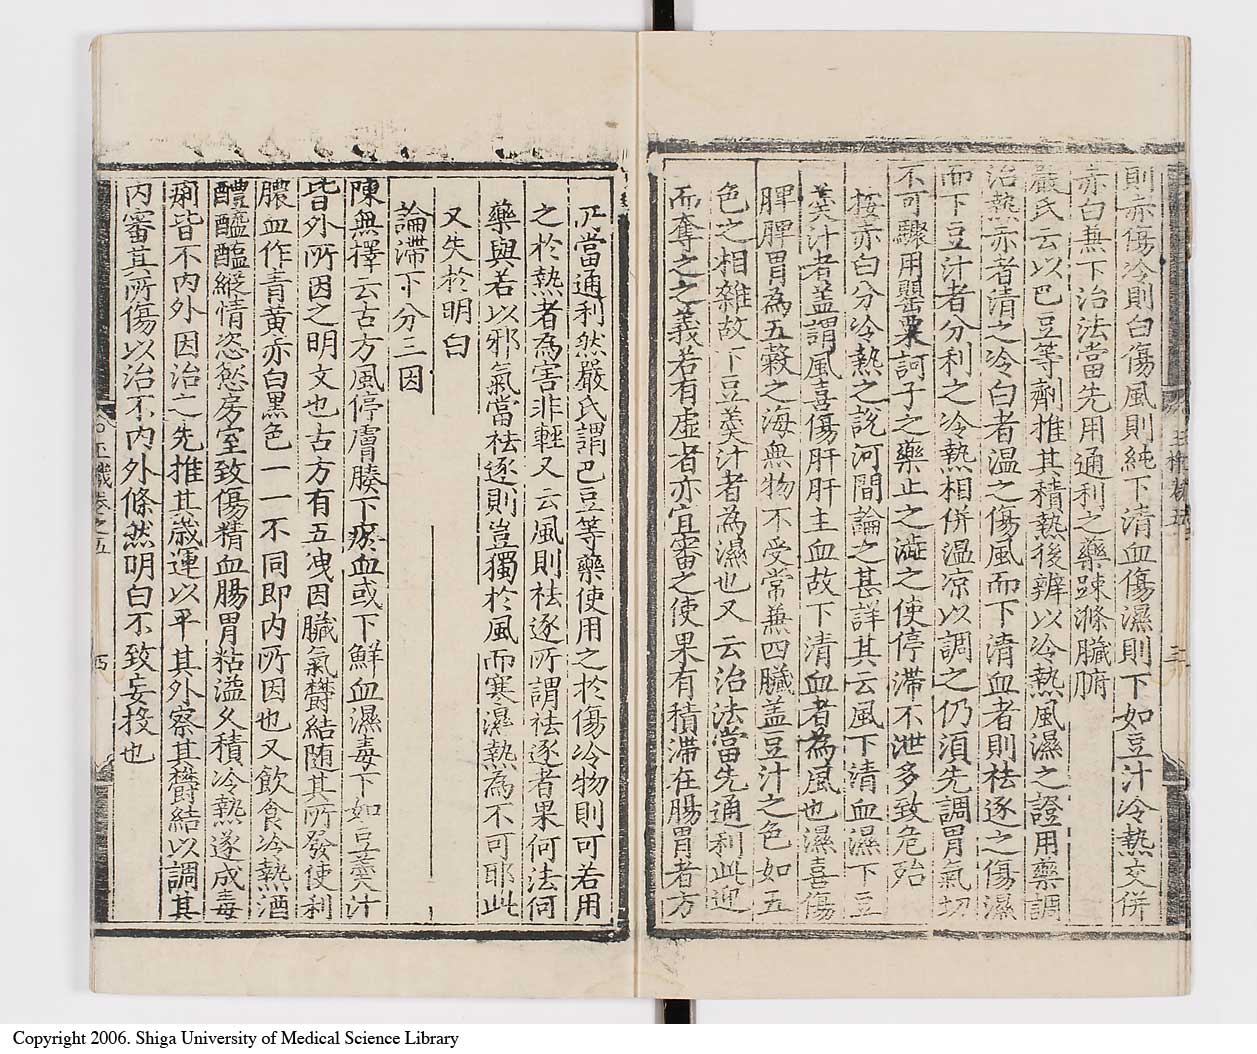 則赤傷冷則白傷風則純下清血傷濕則下如豆汁冷熱交併
赤白兼下治法當先用通利之藥踈滌臟腑
嚴氏云以巴豆等劑推其積熱後辨以冷熱風濕之證用藥調
治熱赤者清之冷白者温之傷風而下清血者則祛逐之傷濕
而下豆汁者分利之冷熱相併温凉以調之仍須先調胃氣切
不可驟用罌粟訶子之藥止之澁之使停滯不泄多致危殆
按赤白分冷熱之說河間論之甚詳其云風下清血濕下豆
羮汁者盖謂風喜傷肝肝主血故下清血者為風也濕喜傷
脾脾胃為五穀之海無物不受常兼四臟盖豆汁之色如五
色之相雜故下豆羮汁者為濕也又云治法當先通利此迎
而奪之之義若有虚者亦宜審之使果有積滯在腸胃者方
可當通利然嚴氏謂巴豆等藥使用之於傷冷物則可若用
之於熱者為害非輕又云風則祛逐所謂祛逐者果何法何
藥與若以邪氣當祛逐則豈獨於風而寒濕熱為不可耶此
又失於明白
論滯下分三因
陳無擇云古方風停膚腠下瘀血或下鮮血濕毒下如豆羮汁
皆外所因之明文也古方有五洩因臟氣欝結随其所發使利
膿血作青黄赤白黑色一一不同即内所因也又飲食冷熱酒
醴醯醢縱情恣慾房室致傷精血腸胃枯澁久積冷熱遂成毒
痢皆不内外因治之先推其歳運以平其外察其欝結以調其
内審其所傷以治不内外條然明白不致妄投也
卷之五